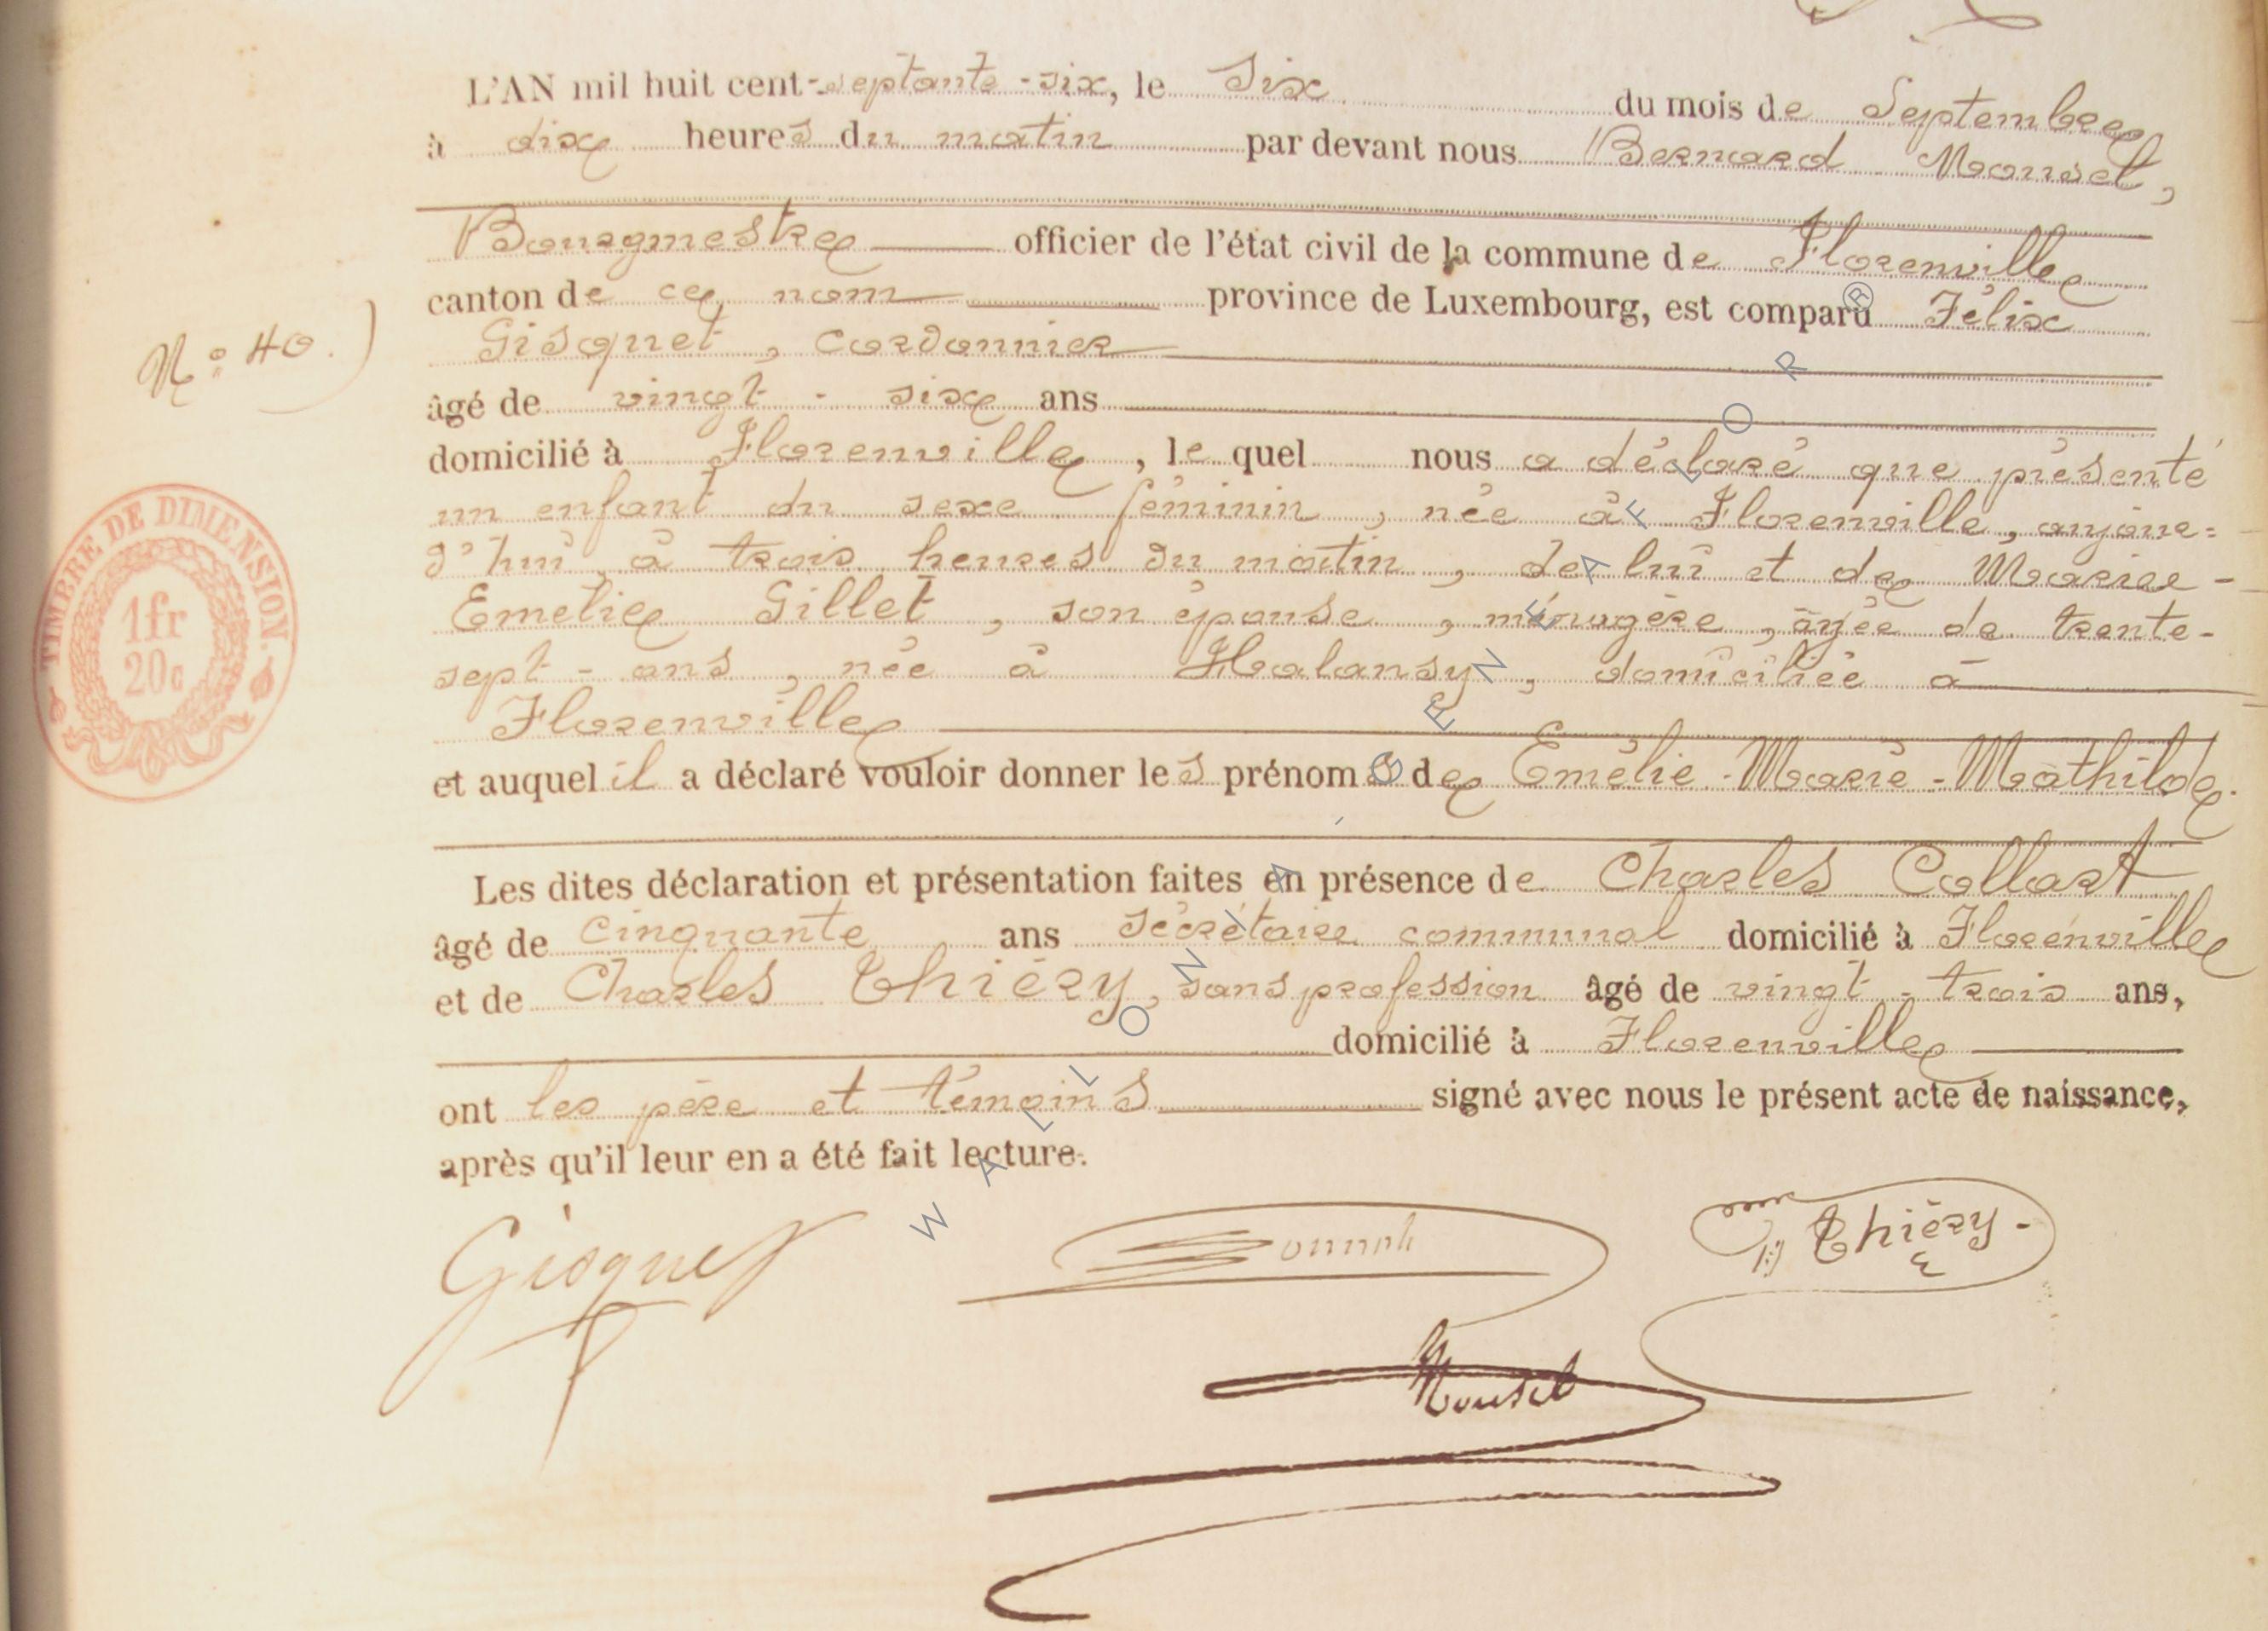 L'AN mil huit cent-septante-six, le Six du mois de Septembre,
à dix heures du matin par devant nous Bernard Mousel,
Bourgmestre officier de l'état civil de la commune de Florenville
canton de ce nom province de Luxembourg, est comparu Félix
Gisquet, cordonnier
N° 40.
âgé de vingt-six ans
domicilié à Florenville, le quel nous a déclaré que présenté
un enfant du sexe féminin, née à Florenville, aujour=
d'hui à trois heures du matin, de lui et de Marie-
Emelie Gillet, son épouse, ménagère, âgée de trente-
sept-ans, née à Halansy, domiciliée à
Florenville
et auquel il a déclaré vouloir donner les prénoms de Emélie-Marie-Mathilde.
Les dites déclaration et présentation faites en présence de Charles Collart
âgé de cinquante ans Sécrétaire communal domicilié à Florenville
et de Charles Thiéry, sans profession âgé de vingt-trois ans,
domicilié à Florenville
ont les père et témoins signé avec nous le présent acte de naissance,
après qu'il leur en a été fait lecture.
TIMBRE DE DIMENSION.
1fr
20c
Gisquet
Thiéry
Mousel
WALLONIA GEN EAFLOR ®